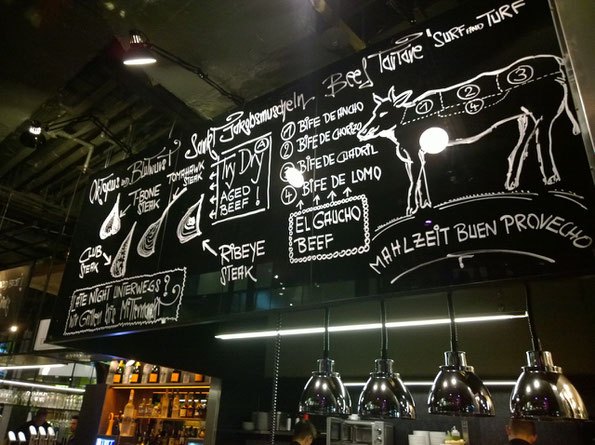 Oktopus und Blutwurst
Sankt Jakobsmuscheln
Beef Tartare "SURF AND TURF
T-BONE
STEAK
TOMAHAWK
STEAK
CLUB
STEAK
RIBEYE
STEAK
DRY
AGED
BEEF!
① BIFE DE ANCHO
② BIFE DE CHORIZO
③ BIFE DE CUADRIL
④ BIFE DE LOMO
EL GAUCHO
BEEF
1
2
3
4
MAHLZEIT BUEN PROVECHO
LATE NIGHT UNTERWEGS?
Wir Grillen bis Mitternacht